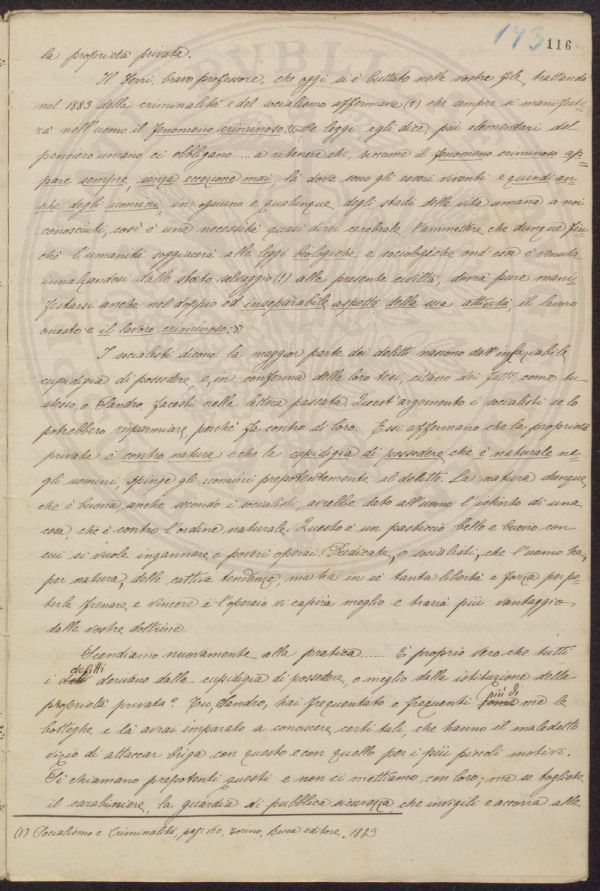 143 116
la proprietà privata.
Il Ferri, bravo professore, che oggi si è buttato nelle vostre file, trattando
nel 1883 della criminalità e del socialismo affermava (1) che sempre si manifeste-
rà nell'uomo il fenomeno criminoso. "Le leggi, egli dice, più elementari del
pensiero umano ci obbligano .... a ritenere che, siccome il fenomeno criminoso ap-
pare sempre, senza eccezione mai, là dove sono gli esseri viventi e quindi an-
che degli uomini, in ognuno e qualunque degli stadi della vita umana a noi
conosciuti, così è una necessità quasi direi cerebrale l'ammettere che dunque fin
chè l'umanità soggiacerà alle leggi biologiche e sociologiche ond'essa è venuta
innalzandosi dallo stato selvaggio (!) alla presente civiltà, dovrà pure mani-
festarsi anche nel doppio ed inseparabile aspetto della sua attività, il lavoro
onesto e il lavoro criminoso."
I socialisti dicono: la maggior parte dei delitti nascono dall'insaziabile
cupidigia di possedere, e, in conferma della loro tesi, citano dei fatti come tu
stesso, o Sandro, facesti nella lettera passata. Quest'argomento i socialisti se lo
potrebbero risparmiare, perchè fa contro di loro. Essi affermano che la proprietà
privata è contro natura e che la cupidigia di possedere, che è naturale ne-
gli uomini, spinge gli uomini prepotentemente al delitto. La natura dunque,
che è buona, anche secondo i socialisti, avrebbe dato all'uomo l'istinto di una
cosa, che è contro l'ordine naturale. Questo è un pasticcio bello e buono con
cui si vuole ingannare i poveri operai. Predicate, o socialisti, che l'uomo ha,
per natura, delle cattive tendenze, ma ha in sè tanta libertà e forza per po-
terle frenare e vincere e l'operaio vi capirà meglio e trarrà più vantaggio
dalle vostre dottrine.
Scendiamo nuovamente alla pratica ...... È proprio vero che tutti
i delitti derivano dalla cupidigia di possedere, o meglio dalla istituzione della
proprietà privata? Tu, Sandro, hai frequentato e frequenti più di me le
botteghe e là avrai imparato a conoscere certi tali, che hanno il maledetto
vizio di attaccar briga con questo e con quello per i più piccoli motivi.
Si chiamano prepotenti questi e non ci mettiamo con loro; ma se togliete
il carabiniere, la guardia di pubblica sicurezza, che invigili e accorra alle
(1) Socialismo e Criminalità, pag: 160, Torino, Bocca editore, 1883